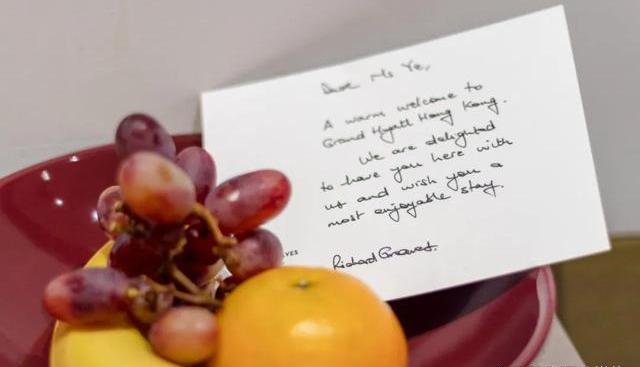 Dear Ms Ye,
A warm welcome to
Grand Hyatt Hong Kong.
We are delighted
to have you here with
us and wish you a
most enjoyable stay.
Richard Greaves.
VES